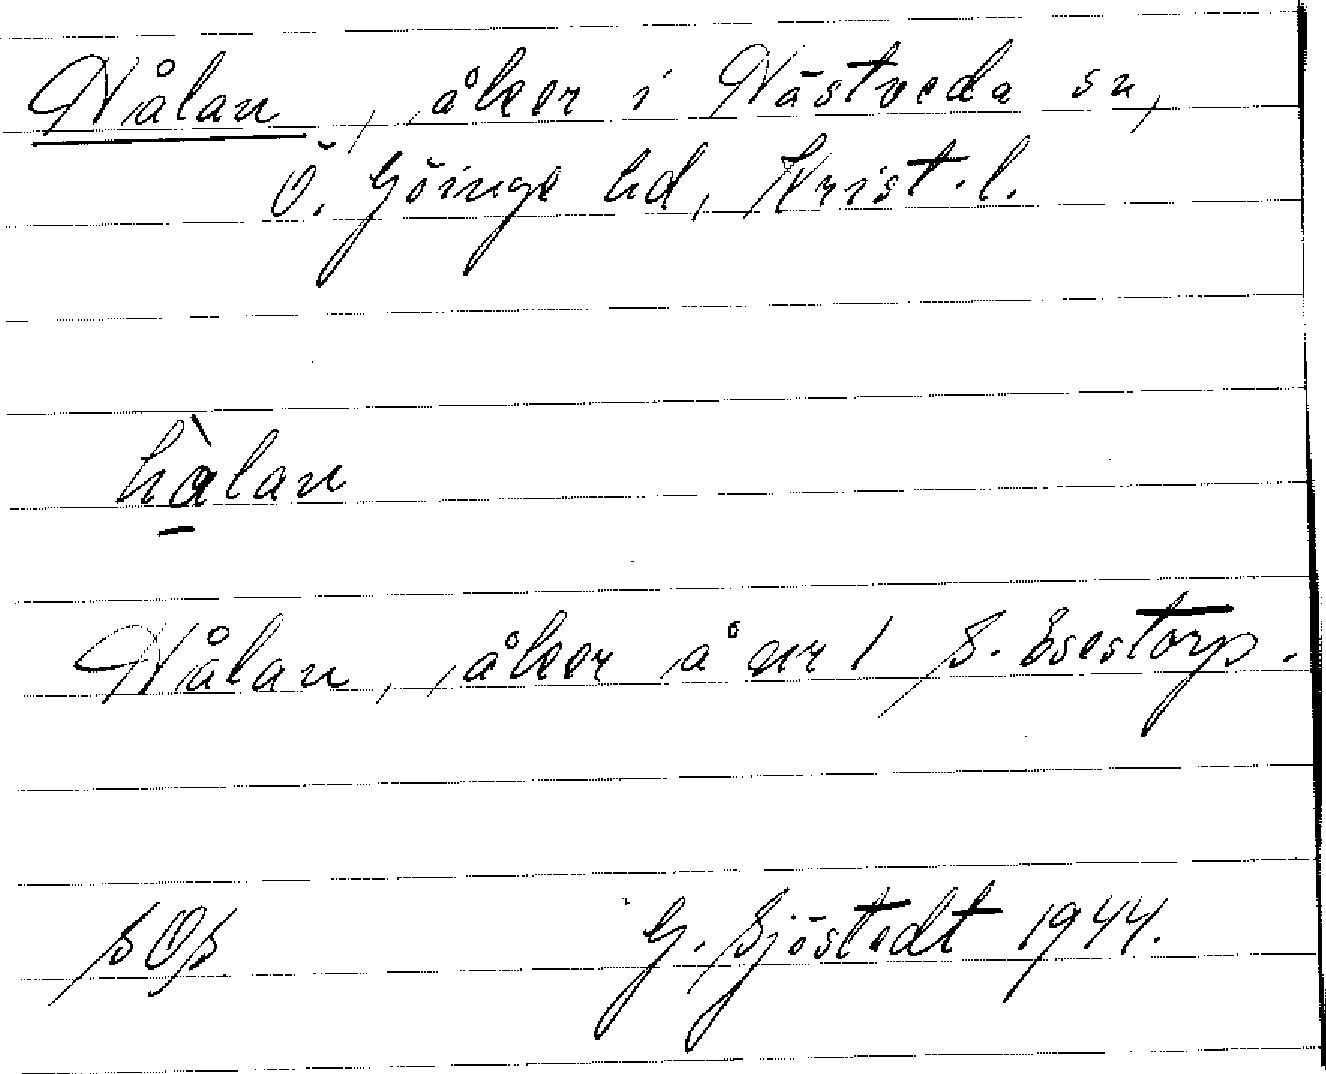 Hålan, åker i Hästveda sn,
Ö. Göinge hd, Krist. l.
hàlan
Hålan, åker å nr 1 S. Esestorp.
SOS G. Sjöstedt 1944.